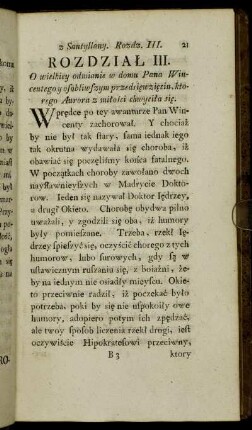 z Santyllany. Rozdz. III. 21
ROZDZIAŁ III.
O wielkiey odmianie w domu Pana Win-
centego y osobliwszym przedsięwzięciu, kto-
rego Aurora z miłości chwyciła się.
Wprędce po tey awanturze Pan Win-
centy zachorował. Y chociaż
by nie był tak stary, sama iednak iego
tak okrutna wydawała się choroba, iż
obawiać się poczęliśmy końca fatalnego.
W początkach choroby zawołano dwoch
naysławnieyszych w Madrycie Dokto-
row. Ieden się nazywał Doktor Iędrzey,
a drugi Okieto. Chorobę obydwa pilno
uważali, y zgodzili się oba, iż humory
były pomieszane. Trzeba, rzekł Ię-
drzey spieszyć się, oczyścić chorego z tych
humorow, lubo surowych, gdy są w
ustawicznym ruszaniu się, z boiaźni, że-
by na iednym nie osiadły mieyscu. Okie-
to przeciwnie radził, iż poczekać było
potrzeba, poki by się nie uspokoiły owe
humory, a dopiero potym ich zpędzać,
ale twoy sposob liczenia rzekł drugi, iest
oczywiście Hipokratesowi przeciwny,
B 3 ktory